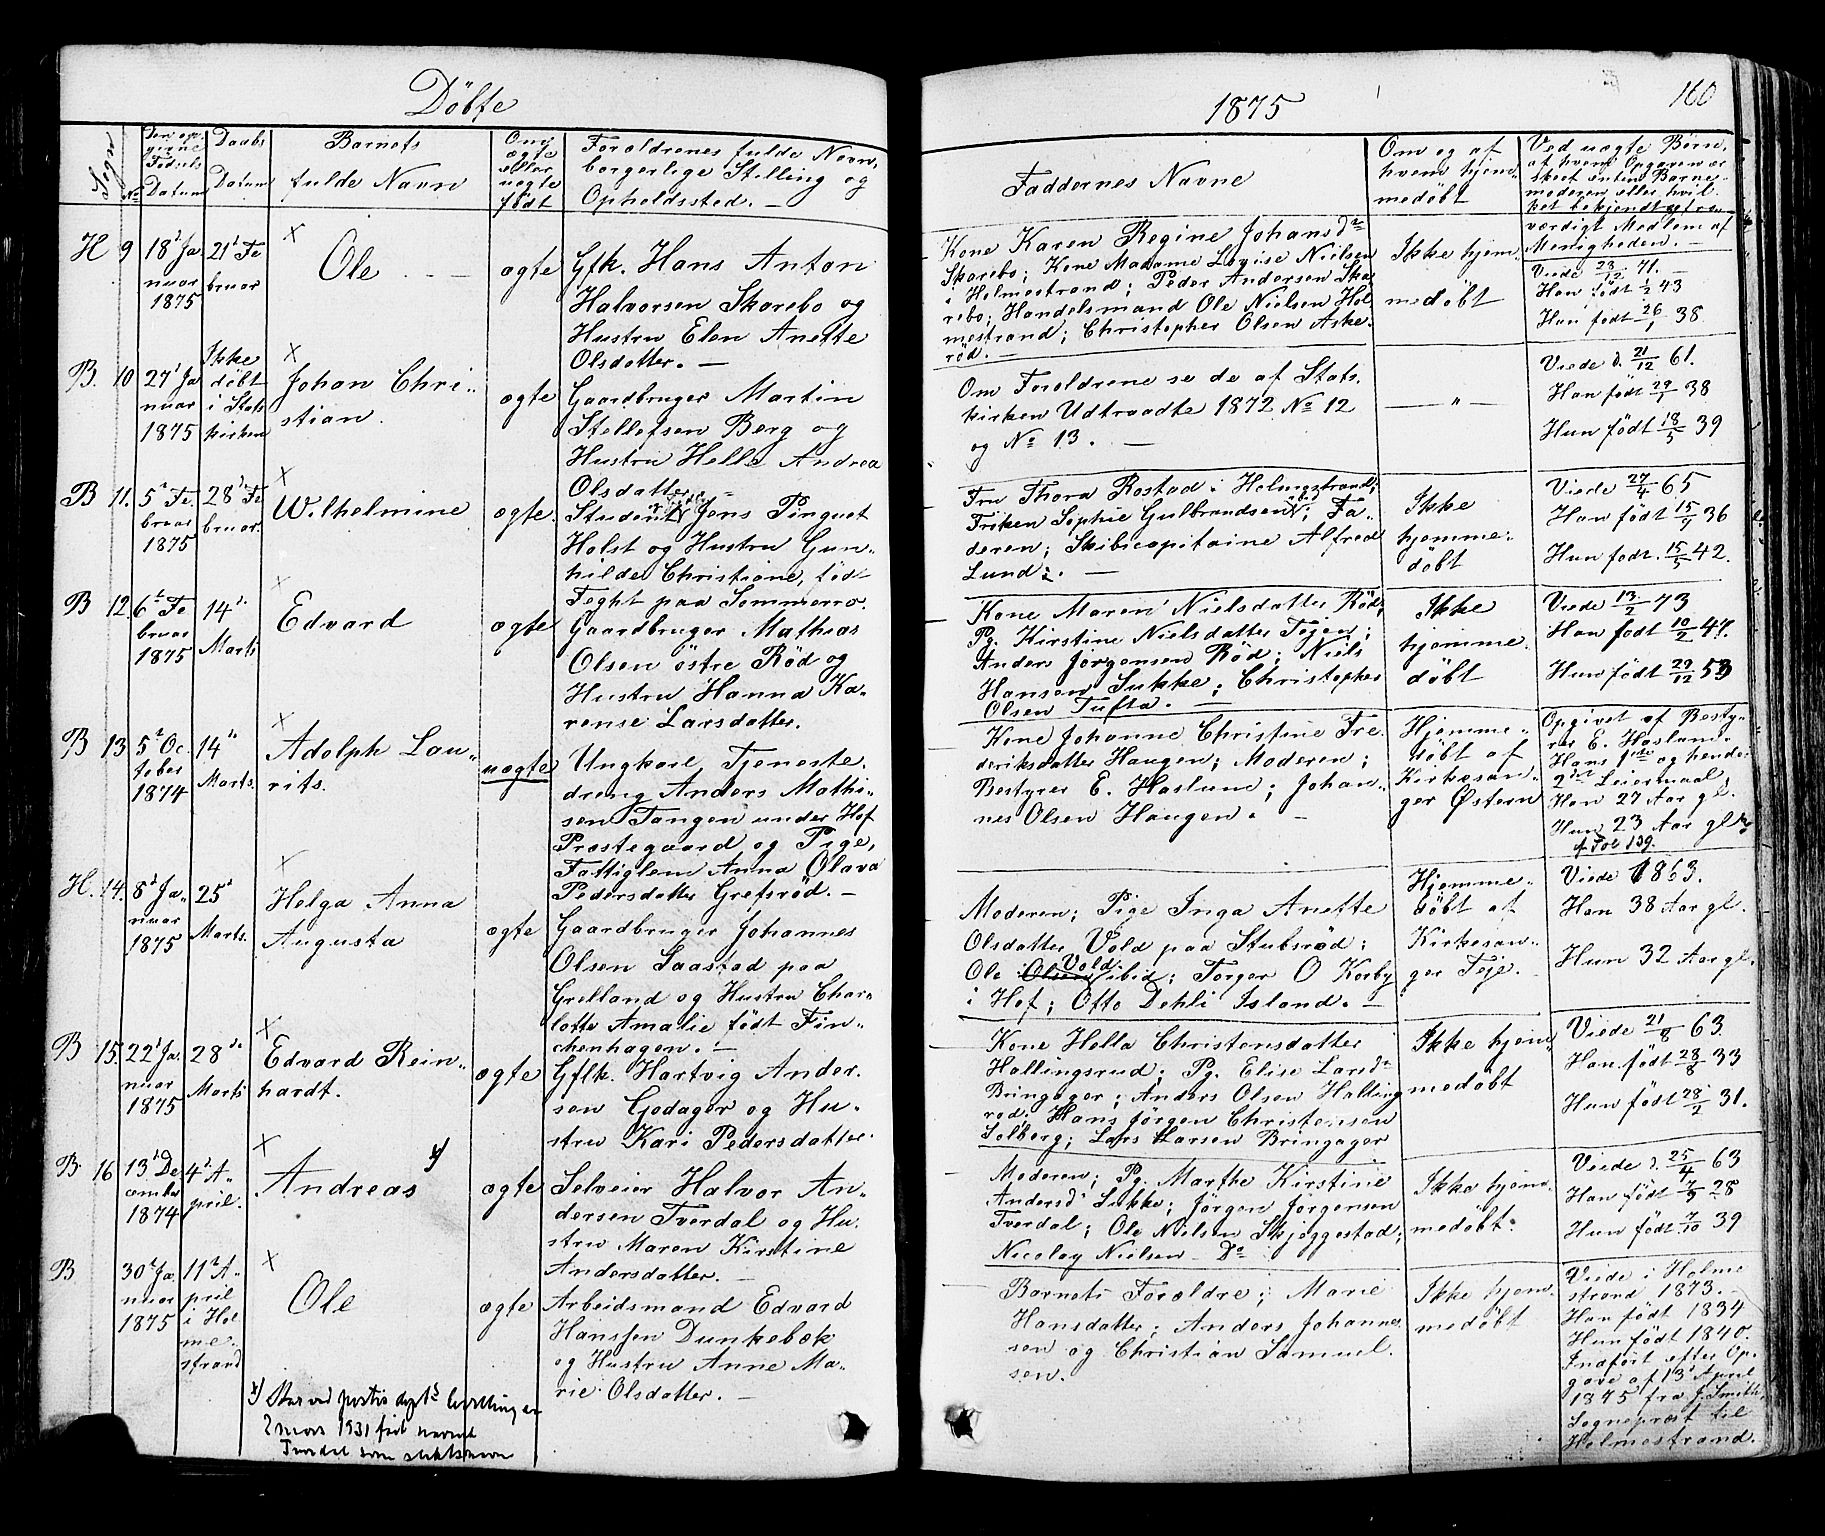 Döbte
1875
160
Sogn
No
Den op-
givne
Födsels
Datum
Daabs
Datum
Barnets
fulde Navn
Om
ægte
eller
uægte
födt
Forældrenes fulde Navn,
borgerlige Stilling og
Opholdssted. —
Faddernes Navne
Om og af
hvem hjem-
medöbt
Ved uægte Börn,
af hvem Opgaven er
skeet enten Barne-
moderen eller hvil-
ket bekjendt og tro-
værdigt Medlem af
Menigheden. —
H 9
18d Ja
nuar
1875
21d Fe
bruar
Ole
ægte
Gfk. Hans Anton
Halvorsen Skorebo og
Hustru Elen Anette
Olsdatter. —
Kone Karen Regine Johansdr
Skarebo; Kone Madame Lovise Nielsen
i Holmestrand; Peder Andersen Ska
rebo; Handelsmand Ole Nielsen Hol
mestrand; Christopher Olsen Aske-
röd. —
Ikke hjem-
medöbt
Viede 23/12 71. —
Han födt 1/2 43
Hun födt 26/1 38.
B. 10
27d Ja
nuar
1875
Ikke
döbt
i Stats
kirken
Johan Chri-
stian.
ægte
Gaardbruger Martin
Stellefsen Berg og
Hustru Helle Andrea
Olsdatter. —
Om Forældrene se de af Stats.
kirken Udtraadte 1872 No 12
og No 13. —
— " —
Viede d. 21/12 61.
Han födt 29/1 38
Hun födt 18/5 39
B 11.
5d Fe
bruar
1875
28d Fe
bruar.
Wilhelmine
ægte.
Student Jens Pinquet
Holst og Hustru Gun-
hilde Christiane, föd
Feght paa Sommerro.
Fru Thora Rostad i Holmestrand;
Fröken Sophie Gulbrandsen; Fa-
deren; Skibscapitaine Alfred
Lund. —
Ikke
hjemme-
döbt
Viede 27/4 65
Han födt 15/7 36
Hun födt. 15/5 42.
B 12
6t Fe
bruar
1875
14d
Marts
Edvard
ægte
Gaardbruger Mathias
Olsen östre Röd og
Hustru Hanna Ka-
rense Larsdatter.
Kone Maren Nielsdatter Röd;
Pg. Kirstine Nielsdatter Tejen;
Anders Jörgensen Röd; Niels
Hansen Sukke; Christopher
Olsen Tufta. —
Ikke
hjemme-
döbt
Viede 13/2 73
Han födt 10/2 47.
Hun födt 29/12 53
B 13
5t Oc.
tober
1874
14d
Marts.
Adolph Lau-
rits.
uægte
Ungkarl, Tjeneste.
dreng Anders Mathi-
sen Tangen under Hof
Præstegaard og Pige,
Fattiglem Anna Olava
Pedersdatter Grefsröd. —
Kone Johanne Christine Fre
deriksdatter Haugen; Moderen;
Bestyrer E. Haslund; Johan-
nes Olsen Haugen. —
Hjemme-
döbt af
Kirkesan-
ger Östern
Opgivet af Besty-
rer E. Haslund.
Hans 1ste og hendes
2det Leiermaal;
Han 27 Aar gl.
Hun 23 Aar gl.
cf. Fol 139.
H. 14.
8d Ja-
nuar
1875
25d
Marts.
Helga Anna
Augusta
ægte
Gaardbruger Johannes
Olsen Saastad paa
Grelland og Hustru Char-
lotte Amalie födt Fin-
chenhagen. —
Moderen; Pige Inga Anette
Olsdatter Vold paa Stubsröd;
Ole Olsen Vold ibid; Torger O Korby
i Hof; Otto Dehli Island. —
Hjemme-
döbt af
Kirkesan-
ger Teje.
Viede 1863.
Han 38 Aar gl.
Hun 32 Aar gl.
B 15.
22d Ja.
nuar
1875
28d
Marts
Edvard Rein-
hardt.
ægte
Gflk. Hartvig Ander-
sen Godager og Hu-
stru Kari Pedersdatter.
Kone Hella Christensdatter
Hallingsrud; Pg. Elise Larsdr
Bringager; Anders Olsen Halling
rod; Hans Jörgen Christensen
Solberg; Lars Larsen Bringager
Ikke hjem-
medöbt
Viede 21/8 63.
Han födt 28/8 33
Hun födt 28/2 31.
B. 16
13d De
cember
1874
4d A-
pril.
Andreas x)
ægte
Selveier Halvor An-
dersen Tverdal og Hu.
stru Maren Kirstine
Andersdatter. —
Moderen; Pg. Marthe Kirstine
Andersdr Sukke; Jörgen Jörgensen
Tverdal; Ole Nielsen Skjeggestad;
Nicolay Nielsen Do
Ikke hjem-
medöbt.
Viede d. 25/4 63
Han födt 7/9 28
Hun födt 7/10 39
B
30d Ja
nuar
1875
11d A-
pril
i Hol
me-
strand
Ole
ægte
Arbeidsmand Edvard
Hanssen Dunkebæk
og Hustru Anne Ma-
rie Olsdatter. —
Barnets Forældre; Marie
Hansdatter; Anders Johannes
sen og Christian Samuel.
sen.
Ikke hjem-
medöbt
Viede i Holme
strand 1873. —
Han födt 1834
Hun födt 1840.
Indfört efter Op-
gave af 13d April
1875 fra J. Smith,
Sogneprest til
Holmestrand.
x) Har ved justis dept.s bevilling av
2 mars 1931 fått navnet
Tverdal som slektsnavn